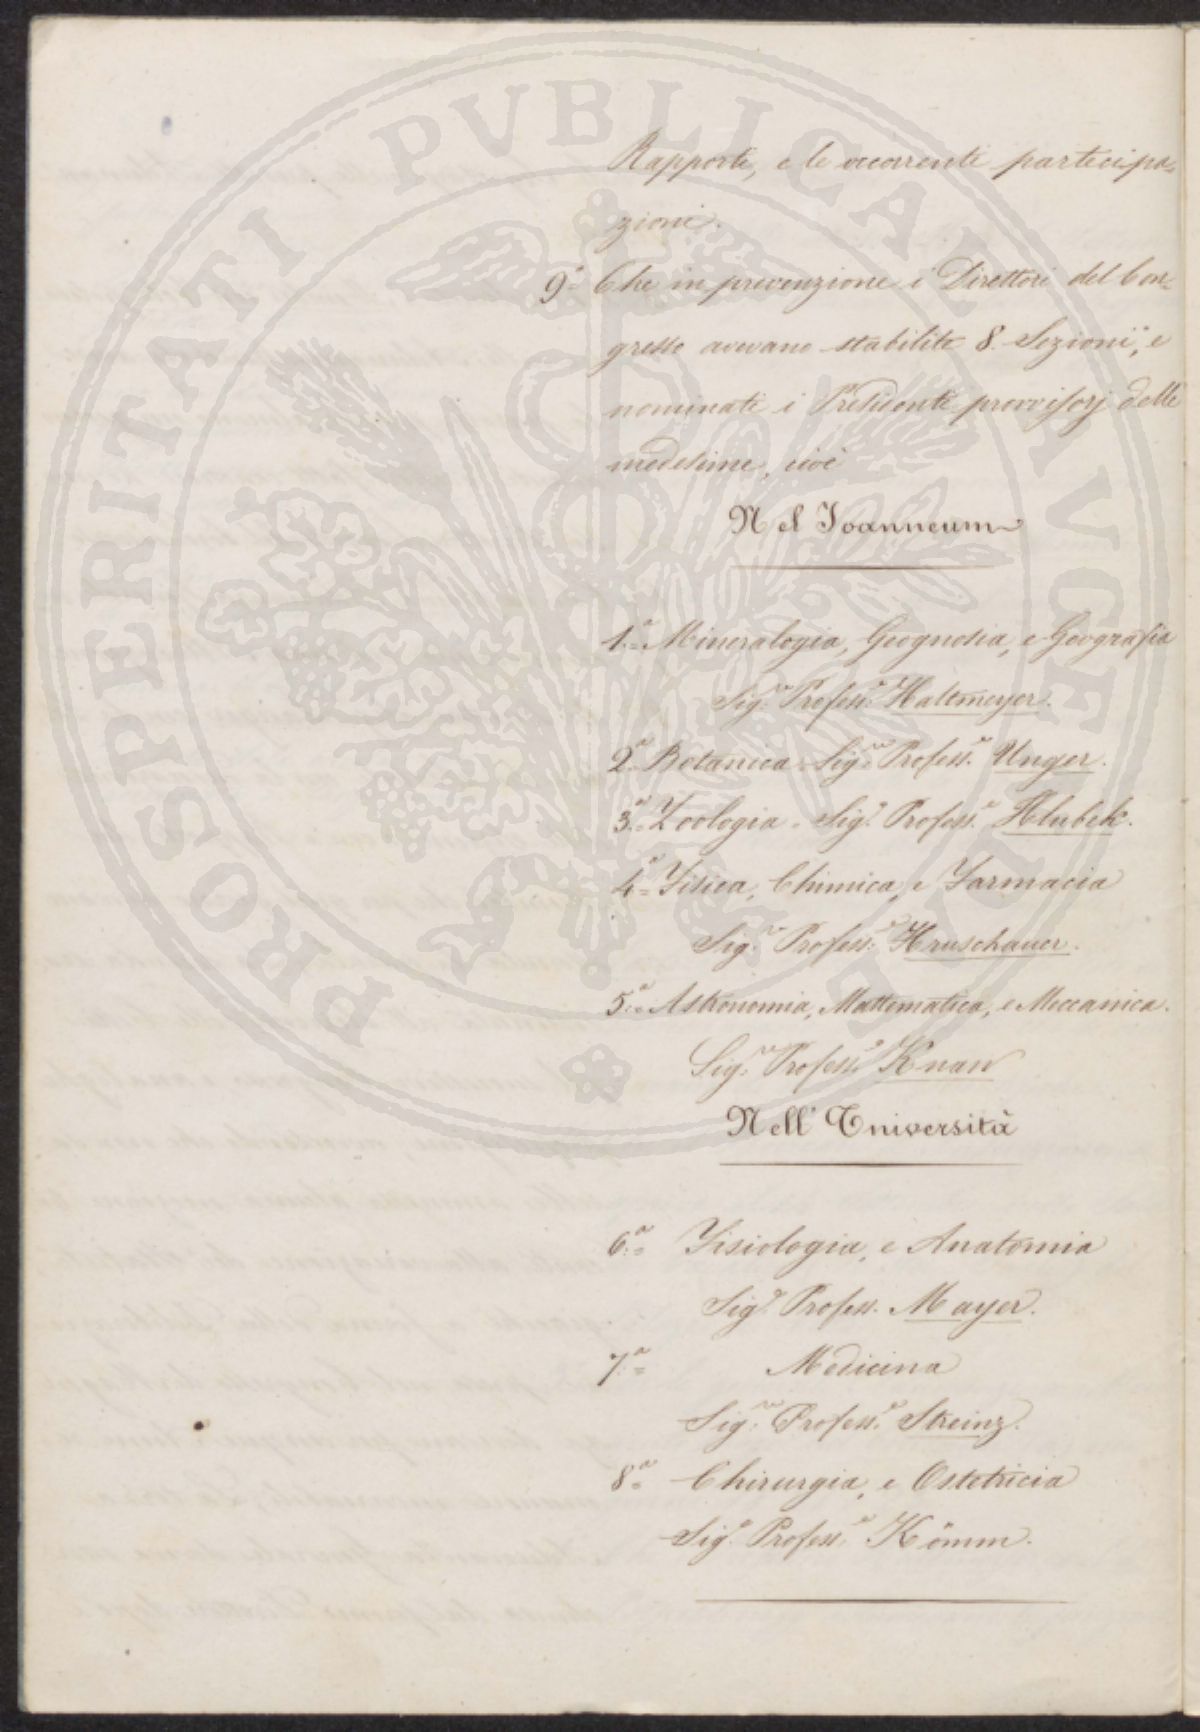 Rapporti, e le occorrenti partecipa=
zioni.
9.° Che in prevenzione i Direttori del Con=
gresso avevano stabilite 8. Sezioni, e
nominati i Presidenti provvisorj delle
medesime, cioè
Nel Joanneum
1.ª Mineralogia, Geognosia, e Geografia
Sig.r Profess.r Haltmeyer.
2.ª Botanica Sig.r Profess.r Unger.
3.ª Zoologia. Sig.r Profess.r Hlubek.
4.ª Fisica, Chimica, e Farmacia
Sig.r Profess.r Hruschauer.
5.ª Astronomia, Mattematica, e Meccanica.
Sig.r Profess.r Knar
Nell' Università
6.ª Fisiologia, e Anatomia
Sig.r Profess. Mayer.
7.ª Medicina
Sig.r Profess.r Streinz.
8.ª Chirurgia, e Ostetricia
Sig.r Profess.r Kömm.
PROSPERITATI PVBLICAE AVGENDAE